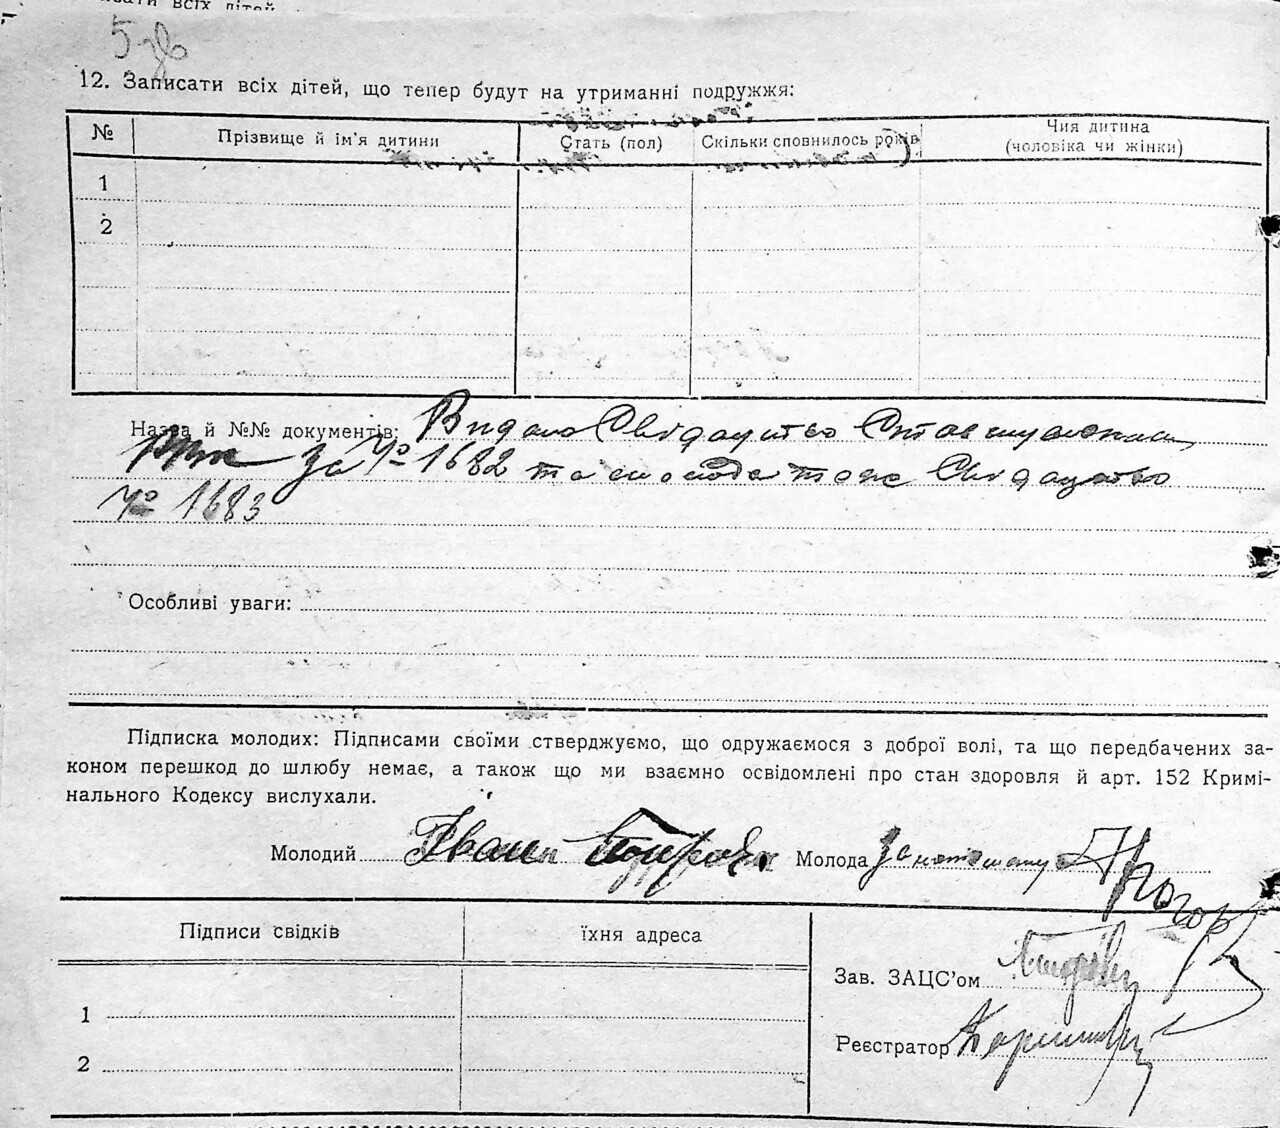 всіх дітей
12. Записати всіх дітей, що тепер будут на утриманні подружжя:
№ Прізвище й ім'я дитини Стать (пол) Скільки сповнилось років Чия дитина
(чоловіка чи жінки)
1
2
Назва й №№ документів: Видано Свідоцтво
за № 1682 та молода тож Свідоцтво
№ 1683
Особливі уваги:
Підписка молодих: Підписами своїми стверджуємо, що одружаємося з доброї волі, та що передбачених за-
коном перешкод до шлюбу немає, а також що ми взаємно освідомлені про стан здоровля й арт. 152 Кримі-
нального Кодексу вислухали.
Молодий Іван Молода
Підписи свідків їхня адреса
Зав. ЗАЦС'ом
1
Реєстратор
2